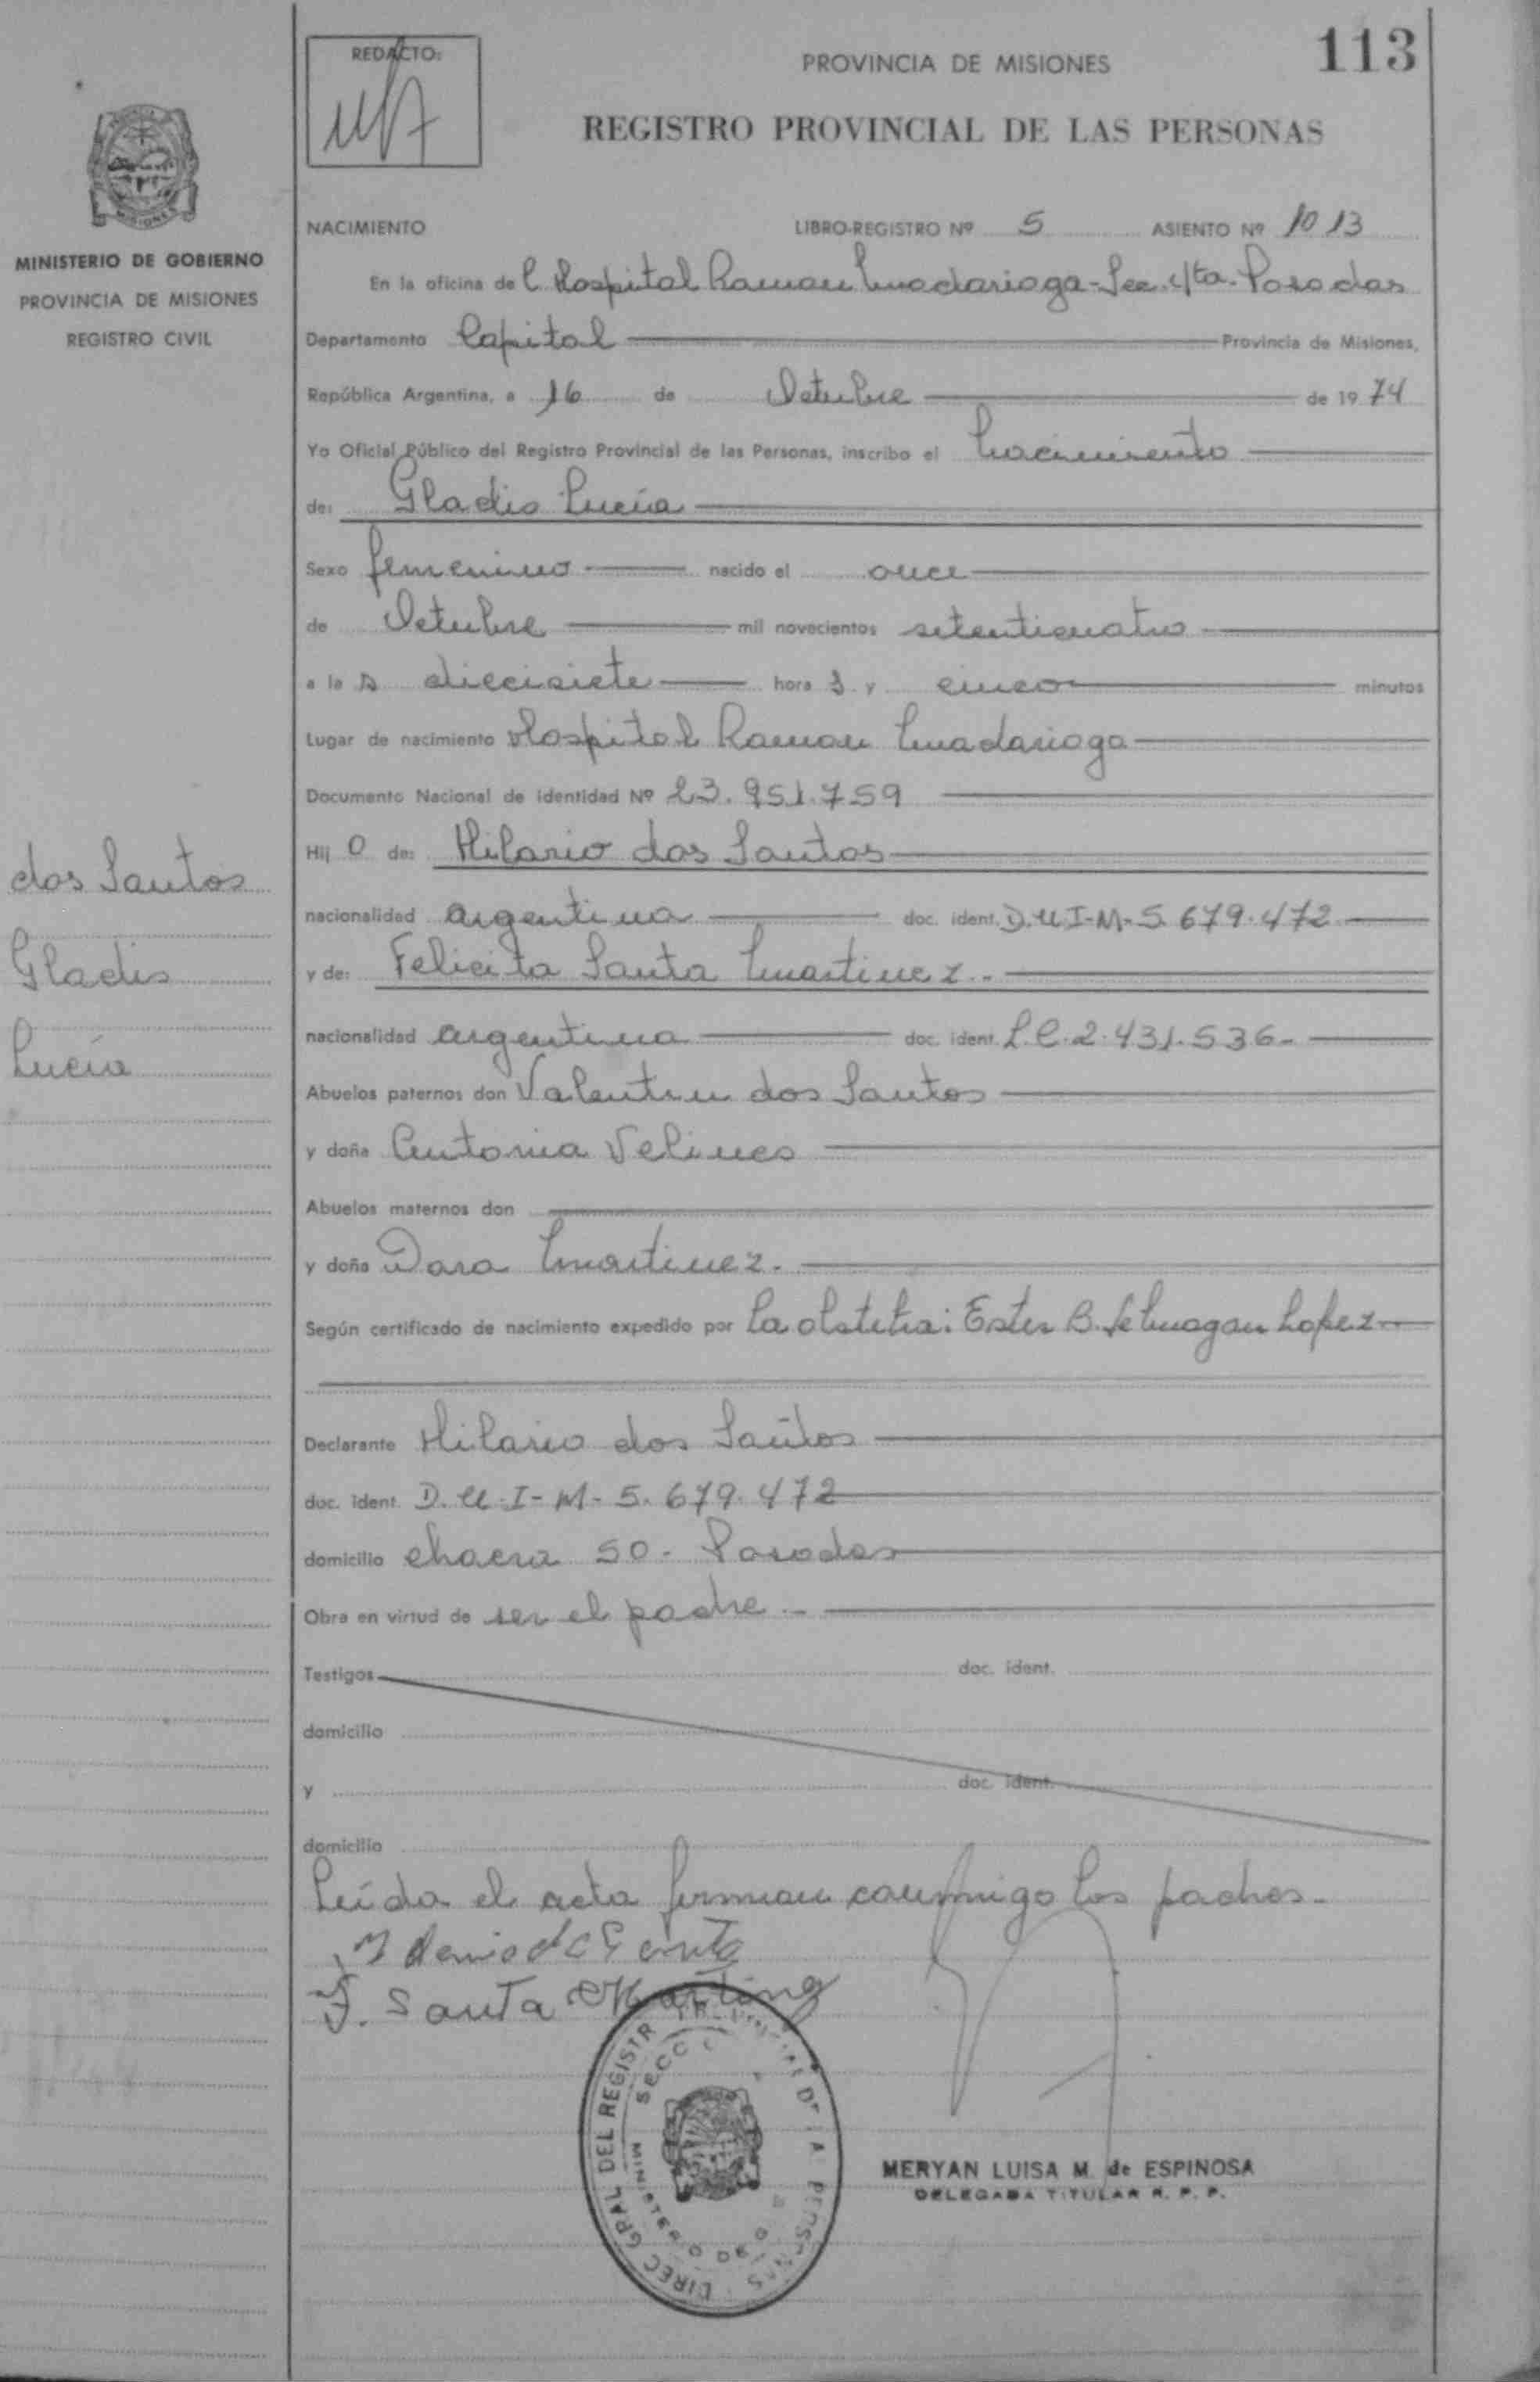 113
REDACTO:
PROVINCIA DE MISIONES
REGISTRO PROVINCIAL DE LAS PERSONAS
MISIONES
MINISTERIO DE GOBIERNO
PROVINCIA DE MISIONES
REGISTRO CIVIL
NACIMIENTO LIBRO-REGISTRO Nº 5 ASIENTO Nº 1013
En la oficina del Hospital Ramon Madariaga - Sec. 4ta. Posadas
Departamento Capital Provincia de Misiones,
República Argentina, a 16 de Octubre de 1974
Yo Oficial Público del Registro Provincial de las Personas, inscribo el Nacimiento
de: Gladis Lucía
Sexo femenino nacido el once
de Octubre mil novecientos setenticuatro
a las diecisiete hora s y cinco minutos
Lugar de nacimiento Hospital Ramon Madariaga
Documento Nacional de Identidad Nº 23.951.759
Hij o de: Hilario dos Santos
nacionalidad argentina doc. ident. D.U.I-M-5.679.472
y de: Felicita Santa Martinez.-
nacionalidad argentina doc. ident. L.C.2.431.536-
Abuelos paternos don Valentin dos Santos
y doña Antonia Velinco
Abuelos maternos don
y doña Dora Martinez.
Según certificado de nacimiento expedido por La obstetra: Ester B. de Lopez
Declarante Hilario dos Santos
doc. ident. D.U.I-M-5.679.472
domicilio chacra 50- Posadas
Obra en virtud de ser el padre.-
Testigos doc. ident.
domicilio
y doc. ident.
domicilio
Leída el acta firman conmigo los padres.-
F. Santa Martinez
dos Santos
Gladis
Lucía
DIREC GRAL DEL REGISTR PROVINCIAL DE LA PERSONAS
SECC
MINISTERIO DE G
MERYAN LUISA M. de ESPINOSA
DELEGADA TITULAR R. P. P.